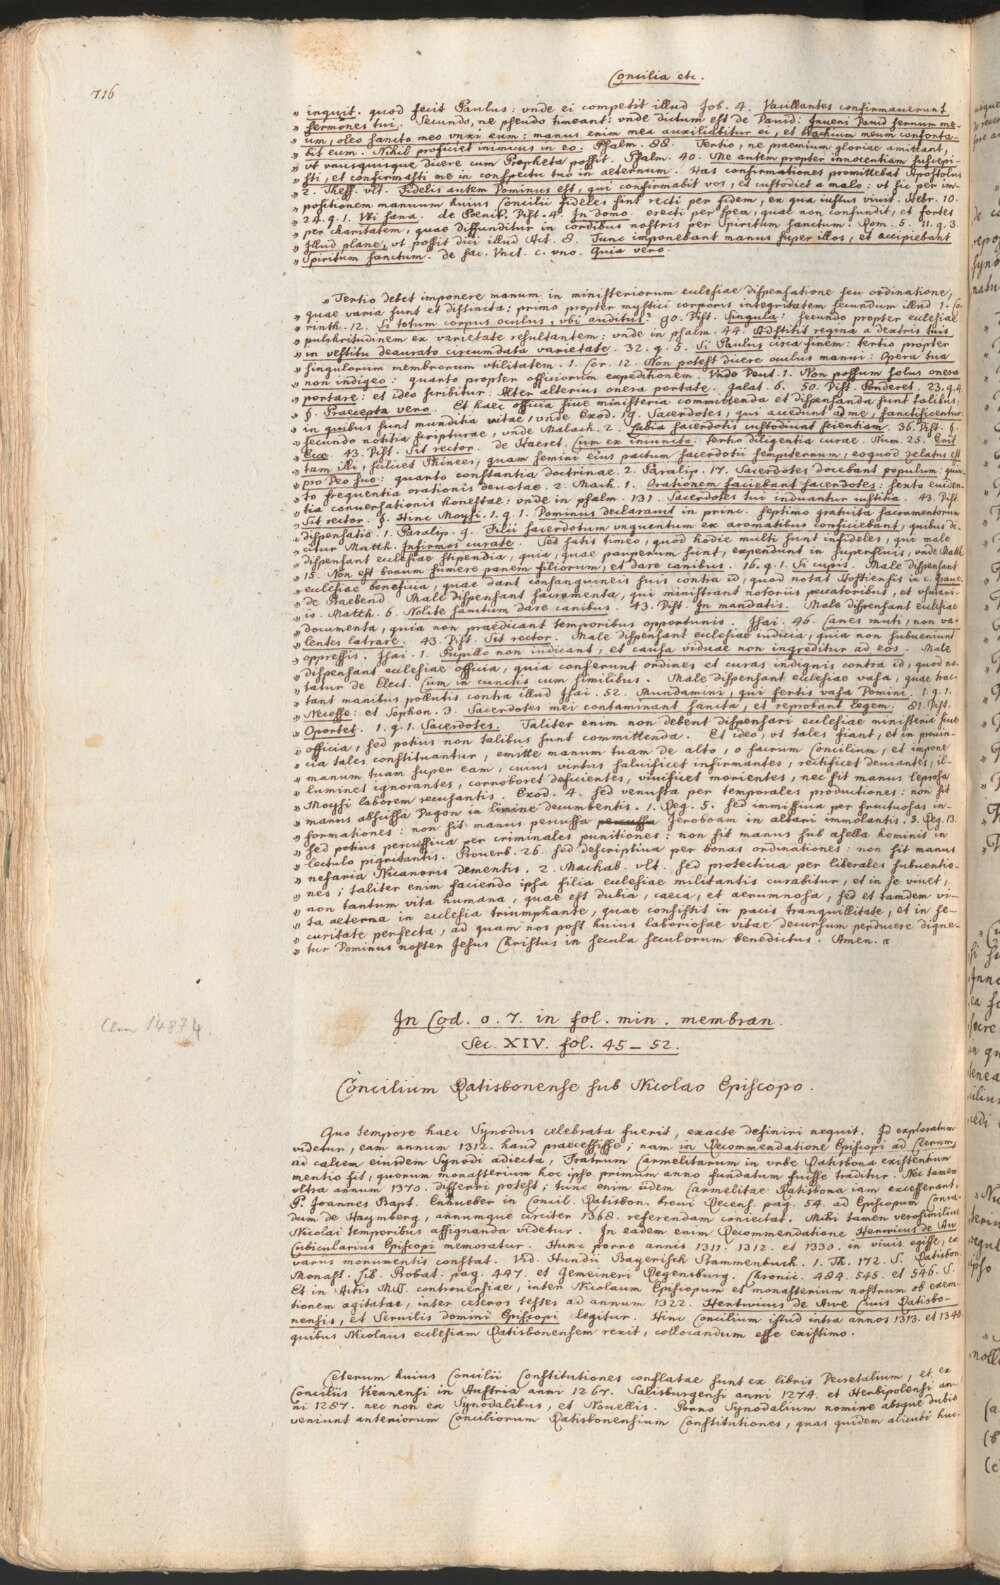 716
Concilia etc.
„ inquit. quod fecit Paulus: vnde ei competit illud Job. 4. Vacillantes confirmauerunt
„ sermones tui. Secundo, ne pseudo timeant: vnde dictum est de Dauid: Inueni Dauid seruum me-
„ um, oleo sancto meo vnxi eum: manus enim mea auxiliabitur ei, et brachium meum conforta-
„ bit eum. Nihil proficiet inimicus in eo. Psalm. 88. Tertio, ne praemium gloriae amittant,
„ vt vnusquisque dicere cum Propheta possit. Psalm. 40. Me autem propter innocentiam suscepi-
„ sti, et confirmasti me in conspectu tuo in aeternum. Has confirmationes promittebat Apostolus
„ 2. Thess. vlt. Fidelis autem Dominus est, qui confirmabit vos, et custodiet a malo: vt sic per im-
„ positionem manuum huius Concilii fideles sint recti per fidem, ex qua iustus viuit. Hebr. 10.
„ 24. q. 1. Vbi sana. de Poenit. Dist. 4. In domo. erecti per spem, quae non confundit, et fortes
„ per charitatem, quae diffunditur in cordibus nostris per Spiritum sanctum. Rom. 5. 11. q. 3.
„ Illud plane, vt possit dici illud Act. 8. Tunc imponebant manus super illos, et accipiebant
„ Spiritum sanctum. de sac. Vnct. c. vno. Quia vero.
„ Tertio debet imponere manum in ministeriorum ecclesiae dispensatione seu ordinatione,
„ quae varia sunt et distincta: primo propter mystici corporis integritatem secundum illud 1. Co-
„ rinth. 12. Si totum corpus oculus, vbi auditus? 90. Dist. Singula: secundo propter ecclesiae
„ pulchritudinem ex varietate resultantem: vnde in psalm. 44. Adstitit regina a dextris tuis
„ in vestitu deaurato circumdata varietate. 32. q. 5. Si Paulus circa finem: tertio propter
„ singulorum membrorum vtilitatem. 1. Cor. 12. Non potest dicere oculus manui: Opera tua
„ non indigeo: quarto propter officiorum expeditionem. Vnde Deut. 1. Non possum solus onera
„ portare: et ideo scribitur: Alter alterius onera portate. galat. 6. 50. Dist. Ponderet. 23. q. 4.
„ §. Praecepta vero. Et haec officia siue ministeria committenda et dispensanda sunt talibus,
„ in quibus sunt munditia vitae, vnde Exod. 19. Sacerdotes, qui accedunt ad me, sanctificentur:
„ secundo notitia scripturae, vnde Malach. 2. Labia sacerdotis custodiunt scientiam. 36. Dist. §.
„ Ecce. 43. Dist. Sit rector. de Haeret. Cum ex iniuncto: tertio diligentia curae. Num. 25. Erit
„ tam illi, scilicet Phinees, quam semini eius pactum sacerdotii sempiternum, eoquod zelatus est
„ pro Deo suo: quarto constantia doctrinae. 2. Paralip. 17. Sacerdotes docebant populum: quin-
„ to frequentia orationis deuotae. 2. Mach. 1. Orationem faciebant sacerdotes: sexto euiden-
„ tia conuersationis honestae: vnde in psalm. 131. Sacerdotes tui induantur iustitia. 43. Dist.
„ Sit rector. §. Hinc Moysi. 1. q. 1. Dominus declarauit in princ. septimo gratuita sacramentorum
„ dispensatio. 1. Paralip. 9. Filii sacerdotum vnguentum ex aromatibus conficiebant, quibus di-
„ citur Matth. Infirmos curate. Sed satis timeo, quod hodie multi sunt infideles, qui male
„ dispensant ecclesiae stipendia, quia, quae pauperum sunt, expendunt in superfluis, vnde Matth.
„ 15. Non est bonum sumere panem filiorum, et dare canibus. 16. q. 1. Si cupis. Male dispensant
„ ecclesiae beneficia, quae dant consanguineis suis contra id, quod notat Hostiensis in c. graue
„ de Praebend. Male dispensant sacramenta, qui ministrant notoriis peccatoribus, et vsurari-
„ is. Matth. 6. Nolite sanctum dare canibus. 43. Dist. In mandatis. Male dispensant ecclesiae
„ documenta, quia non praedicant temporibus opportunis. Isai. 46. Canes muti, non va-
„ lentes latrare. 43. Dist. Sit rector. Male dispensant ecclesiae iudicia, quia non subueniunt
„ oppressis. Isai. 1. Pupillo non iudicant, et causa viduae non ingreditur ad eos. Male
„ dispensant ecclesiae officia, quia conferunt ordines et curas indignis contra id, quod no-
„ tatur de Elect. Cum in cunctis cum similibus. Male dispensant ecclesiae vasa, quae trac-
„ tant manibus pollutis contra illud Isai. 52. Mundamini, qui fertis vasa Domini. 1. q. 1.
„ Necesse: et Sophon. 3. Sacerdotes mei contaminant sancta, et reprobant legem. 81. Dist.
„ Oportet. 1. q. 1. Sacerdotes. Taliter enim non debent dispensari ecclesiae ministeria siue
„ officia, sed potius non talibus sunt committenda. Et ideo, vt tales fiant, et in prouin-
„ cia tales constituantur, emitte manum tuam de alto, o sacrum Concilium, et impone
„ manum tuam super eam, cuius virtus saluificet infirmantes, rectificet deuiantes, il-
„ luminet ignorantes, corroboret deficientes, viuificet morientes, nec sit manus leprosa
„ Moysi laborem recusantis. Exod. 4. sed venusta per temporales productiones: non sit
„ manus abscissa Dagon in limine decumbentis. 1. Reg. 5. sed immissiua per fructuosas in-
„ formationes: non sit manus percussa Jeroboam in altari immolantis. 3. Reg. 13.
„ sed potius percussiua per criminales punitiones: non sit manus sub asella hominis in
„ lectulo pigritantis. Prouerb. 26. sed descriptiua per bonas ordinationes: non sit manus
„ nefaria Nicanoris dementis. 2. Machab. vlt. sed protectiua per liberales subuentio-
„ nes; taliter enim faciendo ipsa filia ecclesiae militantis curabitur, et in se viuet,
„ non tantum vita humana, quae est dubia, caeca, et aerumnosa, sed et tamdem vi-
„ ta aeterna in ecclesia triumphante, quae consistit in pacis tranquillitate, et in se-
„ curitate perfecta, ad quam nos post huius laboriosae vitae decursum perducere digne-
„ tur Dominus noster Jesus Christus in secula seculorum benedictus. Amen.
Clm 14874
In Cod. o. 7. in fol. min. membran.
Sec. XIV. fol. 45-52.
Concilium Ratisbonense sub Nicolao Episcopo.
Quo tempore haec Synodus celebrata fuerit, exacte definiri nequit. Id exploratum
videtur, eam annum 1312. haud praecessisse; nam in Recommendatione Episcopi ad Clerum,
ad calcem eiusdem Synodi adiecta, Fratrum Carmelitarum in vrbe Ratisbona existentium
mentio fit, quorum monasterium hoc ipso primum anno fundatum fuisse traditur. Nec tamen
vltra annum 1370. differri potest; tunc enim iidem Carmelitae Ratisbona iam excesserant.
P. Joannes Bapt. Enhueber in Concil. Ratisbon. breui Recens. pag. 54. ad Episcopum Conra-
dum de Haymberg, annumque circiter 1368. referendam coniectat. Mihi tamen verosimilius
Nicolai temporibus assignanda videtur. In eadem enim Recommendatione Henwicus de Au
Cubicularius Episcopi memoratur. Hunc porro annis 1311. 1312. et 1330. in viuis egisse, ex
variis monumentis constat. Vid. Hundii Bayerisch Stammenbuch. 1. Th. 172. S. Ratisbon.
Monast. Lib. Probat. pag. 447. et Gemeineri Regensburg. Chronic. 484. 545. et 546. S.
Et in Actis MSS. controuersiae, inter Nicolaum Episcopum et monasterium nostrum ob exem-
tionem agitatae, inter ceteros testes ad annum 1322. Hentwicus de Awe Ciuis Ratisbo-
nensis, et Seruilis domini Episcopi legitur. Hinc Concilium istud intra annos 1313. et 1340.
quibus Nicolaus ecclesiam Ratisbonensem rexit, collocandum esse existimo.
Ceterum huius Concilii Constitutiones conflatae sunt ex libris Decretalium, et ex
Conciliis Viennensi in Austria anni 1267. Salisburgensi anni 1274. et Herbipolensi an-
ni 1287. nec non ex Synodalibus, et Nouellis. Porro Synodalium nomine absque dubio
veniunt anteriorum Conciliorum Ratisbonensium Constitutiones, quas quidem alicubi huc-